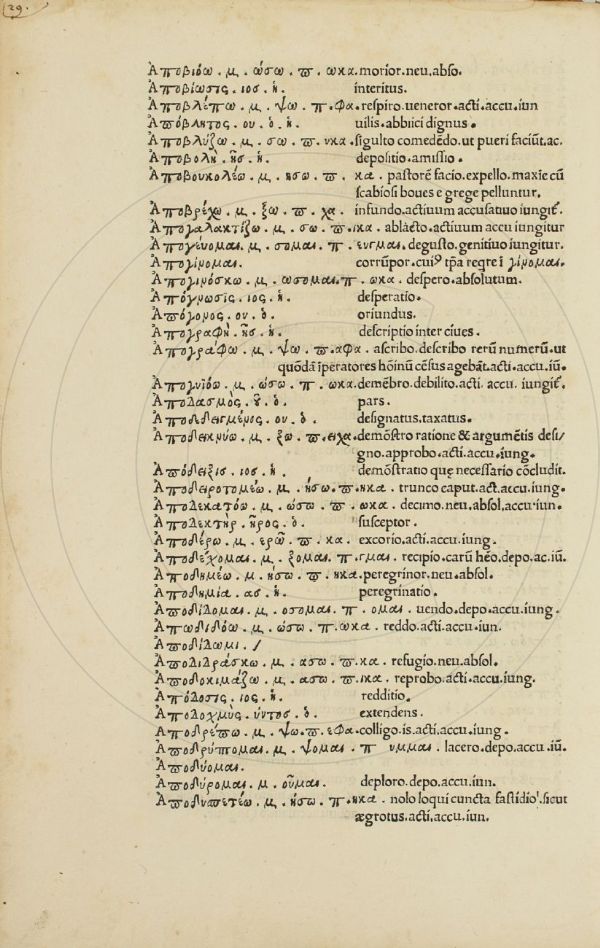 29.
Ἀποβιόω. μ. ώσω. π. ωκα. morior. neu. abso.
Ἀποβίωσις. ιοσ. ἡ. interitus.
Ἀποβλέπω. μ. ψω. π. φα. respiro. ueneror. acti. accu. iun
Ἀπόβλητος. ου. ὁ. ἡ. uilis. abiici dignus.
Ἀποβλύζω. μ. σω. π. υκα. sigulto comedēdo. ut pueri faciūt. ac.
Ἀποβολὴ. ῆς. ἡ. depositio. amissio.
Ἀποβουκολέω. μ. ησω. π. κα. pastorē facio. expello. maxīe cū
scabiosi boues e grege pelluntur.
Ἀποβρέχω. μ. ξω. π. χα. infundo. actiuum accusatiuo iungit᷑.
Ἀπογαλακτίζω. μ. σω. π. ικα. ablacto. actiuum accu iungitur
Ἀπογένομαι. μ. σομαι. π. ευμαι. degusto. genitiuo iungitur.
Ἀπογίνομαι. corrūpor. cuiꝰ tp̄a reqre ī γίνομαι.
Ἀπογινόσκω. μ. ωσομαι. π. ωκα. despero. absolutum.
Ἀπόγνωσις. ιος. ἡ. desperatio.
Ἀπόγονος. ου. ὁ. oriundus.
Ἀπογραφὴ. ῆς. ἡ. descriptio inter ciues.
Ἀπογράφω. μ. ψω. π. αφα. ascribo. describo rerū numerū. ut
quōdā īperatores hoīnū cēsus agebāt. acti. accu. iū.
Ἀπογυιόω. μ. ώσω. π. ωκα. demēbro. debilito. acti. accu. iungit᷑.
Ἀποδασμὸς. ȣ. ὁ. pars.
Ἀποδεδειγμένος. ου. ὁ. designatus. taxatus.
Ἀποδεικνύω. μ. ξω. π. ειχα. demōstro ratione & argumētis desi/
gno. approbo. acti. accu. iung.
Ἀπόδειξισ. ιοσ. ἡ. demōstratio que necessario cōcludit.
Ἀποδειροτομέω. μ. ήσω. π. ηκα. trunco caput. act. accu. iung.
Ἀποδεκατόω. μ. ώσω. π. ωκα. decimo. neu. absol. accu. iun.
Ἀποδεκτὴρ. ῆρος. ὁ. susceptor.
Ἀποδέρω. μ. ερῶ. π. κα. excorio. acti. accu. iung.
Ἀποδέχομαι. μ. ξομαι. π. γμαι. recipio. carū hēo. depo. ac. iū.
Ἀποδημέω. μ. ήσω. π. ηκα. peregrinor. neu. absol.
Ἀποδημία. ασ. ἡ. peregrinatio.
Ἀποδίδομαι. μ. οσομαι. π. ομαι. uendo. depo. accu. iung.
Ἀπωδιδόω. μ. ώσω. π. ωκα. reddo. acti. accu. iun.
Ἀποδίδωμι. /
Ἀποδιδράσκω. μ. ασω. π. κα. refugio. neu. absol.
Ἀποδοκιμάζω. μ. ασω. π. ικα. reprobo. acti. accu. iung.
Ἀπόδοσις. ιος. ἡ. redditio.
Ἀποδοχμὺς. ύντοσ. ὁ. extendens.
Ἀποδρέπω. μ. ψω. π. εφα. colligo. is. acti. accu. iung.
Ἀποδρύπτομαι. μ. ψομαι. π υμμαι. lacero. depo. accu. iū.
Ἀποδύομαι.
Ἀποδύρομαι. μ. οῦμαι. deploro. depo. accu. iun.
Ἀποδυσπετέω. μ. ήσω. π. ηκα. nolo loqui cuncta fastidioꝰ. sicut
ægrotus. acti. accu. iun.